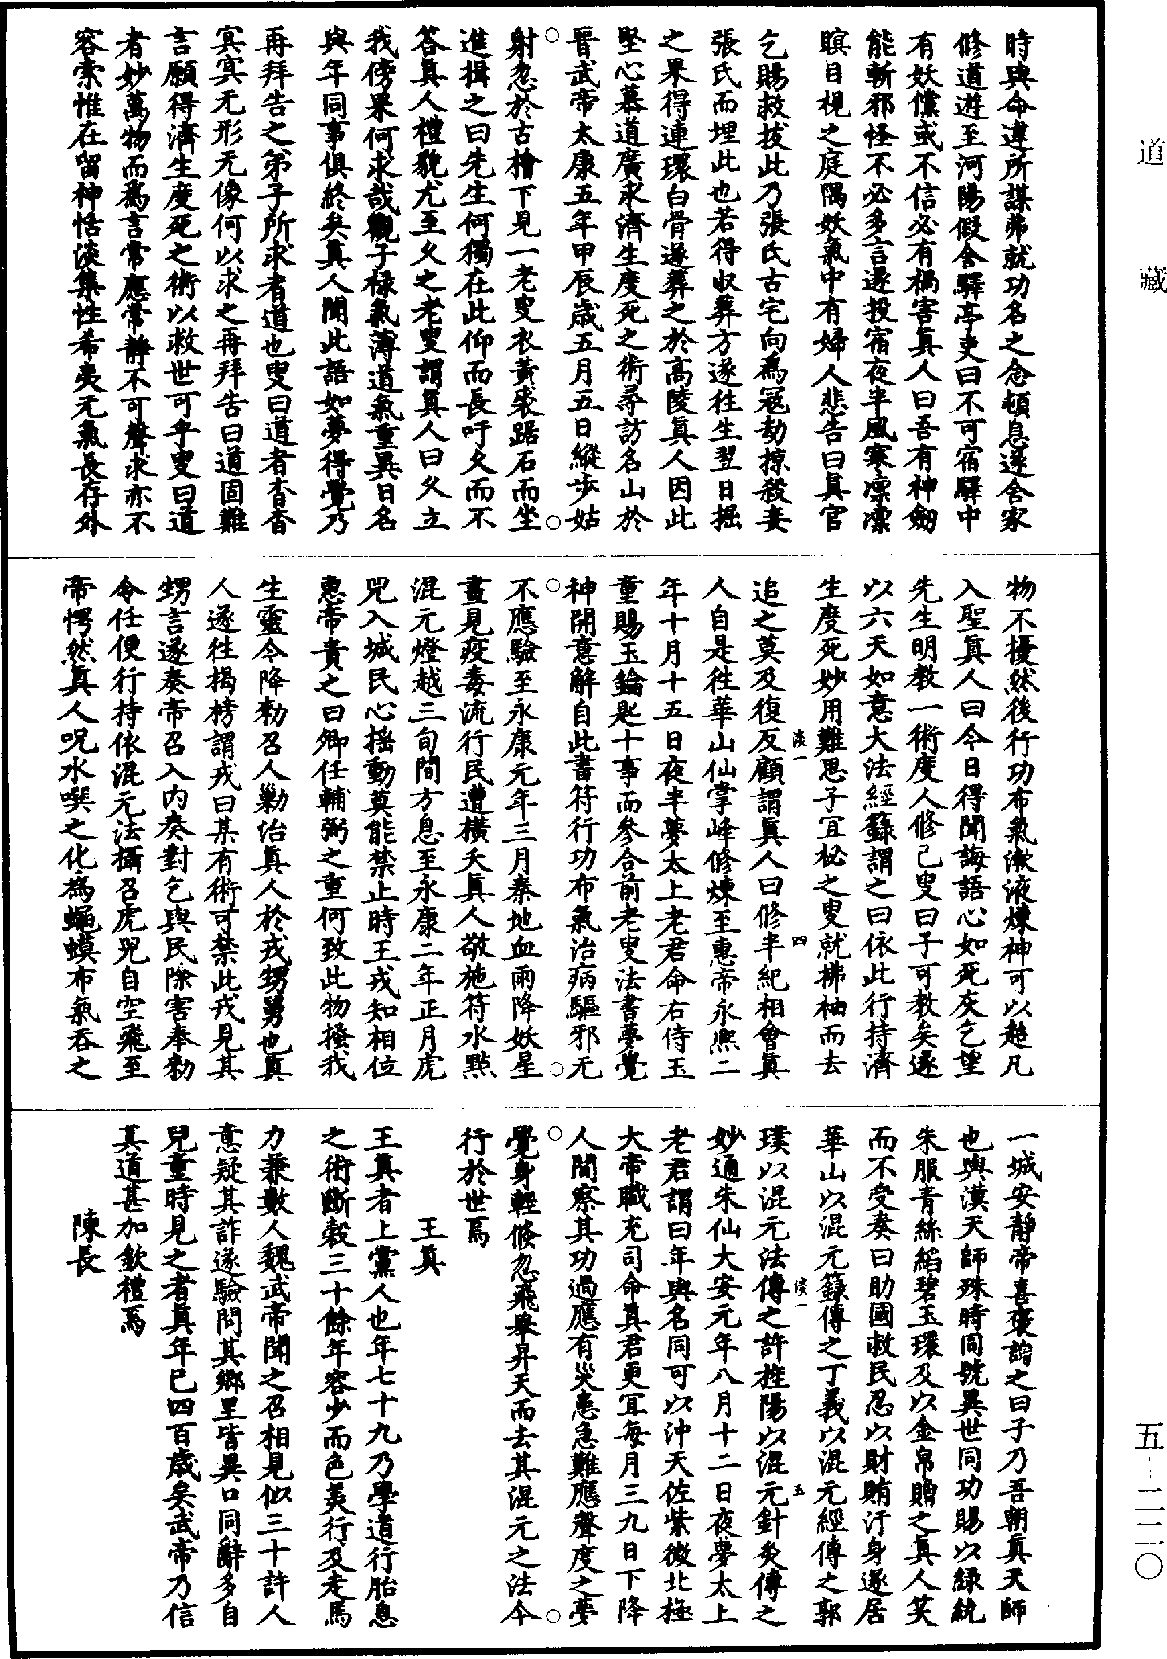 道藏
五-二二〇
時與命違所謀弗就功名之念頓息遂舍家
修道遊至河陽假舍驛亭吏曰不可宿驛中
有妖儻或不信必有禍害真人曰吾有神劒
能斬邪怪不必多言遂投宿夜半風寒凛凛
瞑目視之庭隅妖氣中有婦人悲告曰真官
乞賜救拔此乃張氏古宅向為寇劫掠殺妾
張氏而埋此也若得収葬方遂往生翌日掘
之果得連環白骨遂葬之於高陵真人因此
堅心慕道廣求濟生度死之術尋訪名山於
晉武帝太康五年甲辰歲五月五日縱步姑
射忽於古檜下見一老叟衣黃裘踞石而坐
進揖之曰先生何獨在此仰而長吁久而不
答真人禮貌尤至久之老叟謂真人曰久立
我傍果何求哉觀子祿氣薄道氣重異日名
與年同事俱終矣真人聞此語如夢得覺乃
再拜告之弟子所求者道也叟曰道者杳杳
冥冥无形无像何以求之再拜告曰道固難
言願得濟生度死之術以救世可乎叟曰道
者妙萬物而為言常應常靜不可聲求亦不
容索惟在留神恬淡集性希夷无氣長存外
物不擾然後行功布氣漱液煉神可以超凡
入聖真人曰今日得聞誨語心如死灰乞望
先生明教一術度人修己叟曰子可教矣遂
以六天如意大法經籙謂之曰依此行持濟
生度死妙用難思子宜秘之叟就拂袖而去
追之莫及復反顧謂真人曰修半紀相會真
淡一 四
人自是往華山仙掌峰修煉至惠帝永熙二
年十月十五日夜半夢太上老君命右侍玉
童賜玉鑰匙十事而參合前老叟法書夢覺
神開意解自此書符行功布氣治病驅邪无
不應驗至永康元年三月秦地血雨降妖星
晝見疫毒流行民遭橫夭真人敬施符水點
混元燈越三旬間方息至永康二年正月虎
兕入城民心搖動莫能禁止時王戎知相位
惠帝責之曰卿任輔弼之重何致此物擾我
生靈令降勑召人勦治真人於戎甥舅也真
人遂往揭榜謂戎曰某有術可禁此戎見其
甥言遂奏帝召入內奏對乞與民除害奉勑
令任便行持依混元法攝召虎兕自空飛至
帝愕然真人呪水噀之化為蠅蟆布氣吞之
一城安靜帝喜褒諭之曰子乃吾朝真天師
也與漢天師殊時同號異世同功賜以綠統
朱服青絲縚碧玉環及以金帛贈之真人笑
而不受奏曰助國救民忍以財賄汙身遂居
華山以混元籙傳之丁義以混元經傳之郭
璞以混元法傳之許旌陽以混元針灸傳之
淡一 五
妙通朱仙大安元年八月十二日夜夢太上
老君謂曰年與名同可以沖天佐紫微北極
大帝職充司命真君更宜每月三九日下降
人間察其功過應有災患急難應聲度之夢
覺身輕倏忽飛舉昇天而去其混元之法今
行於世焉
王真
王真者上黨人也年七十九乃學道行胎息
之術斷穀三十餘年容少而色美行及走馬
力兼數人魏武帝聞之召相見似三十許人
意疑其詐遂驗問其鄉里皆異口同辭多自
兒童時見之者真年已四百歲矣武帝乃信
其道甚加欽禮焉
陳長